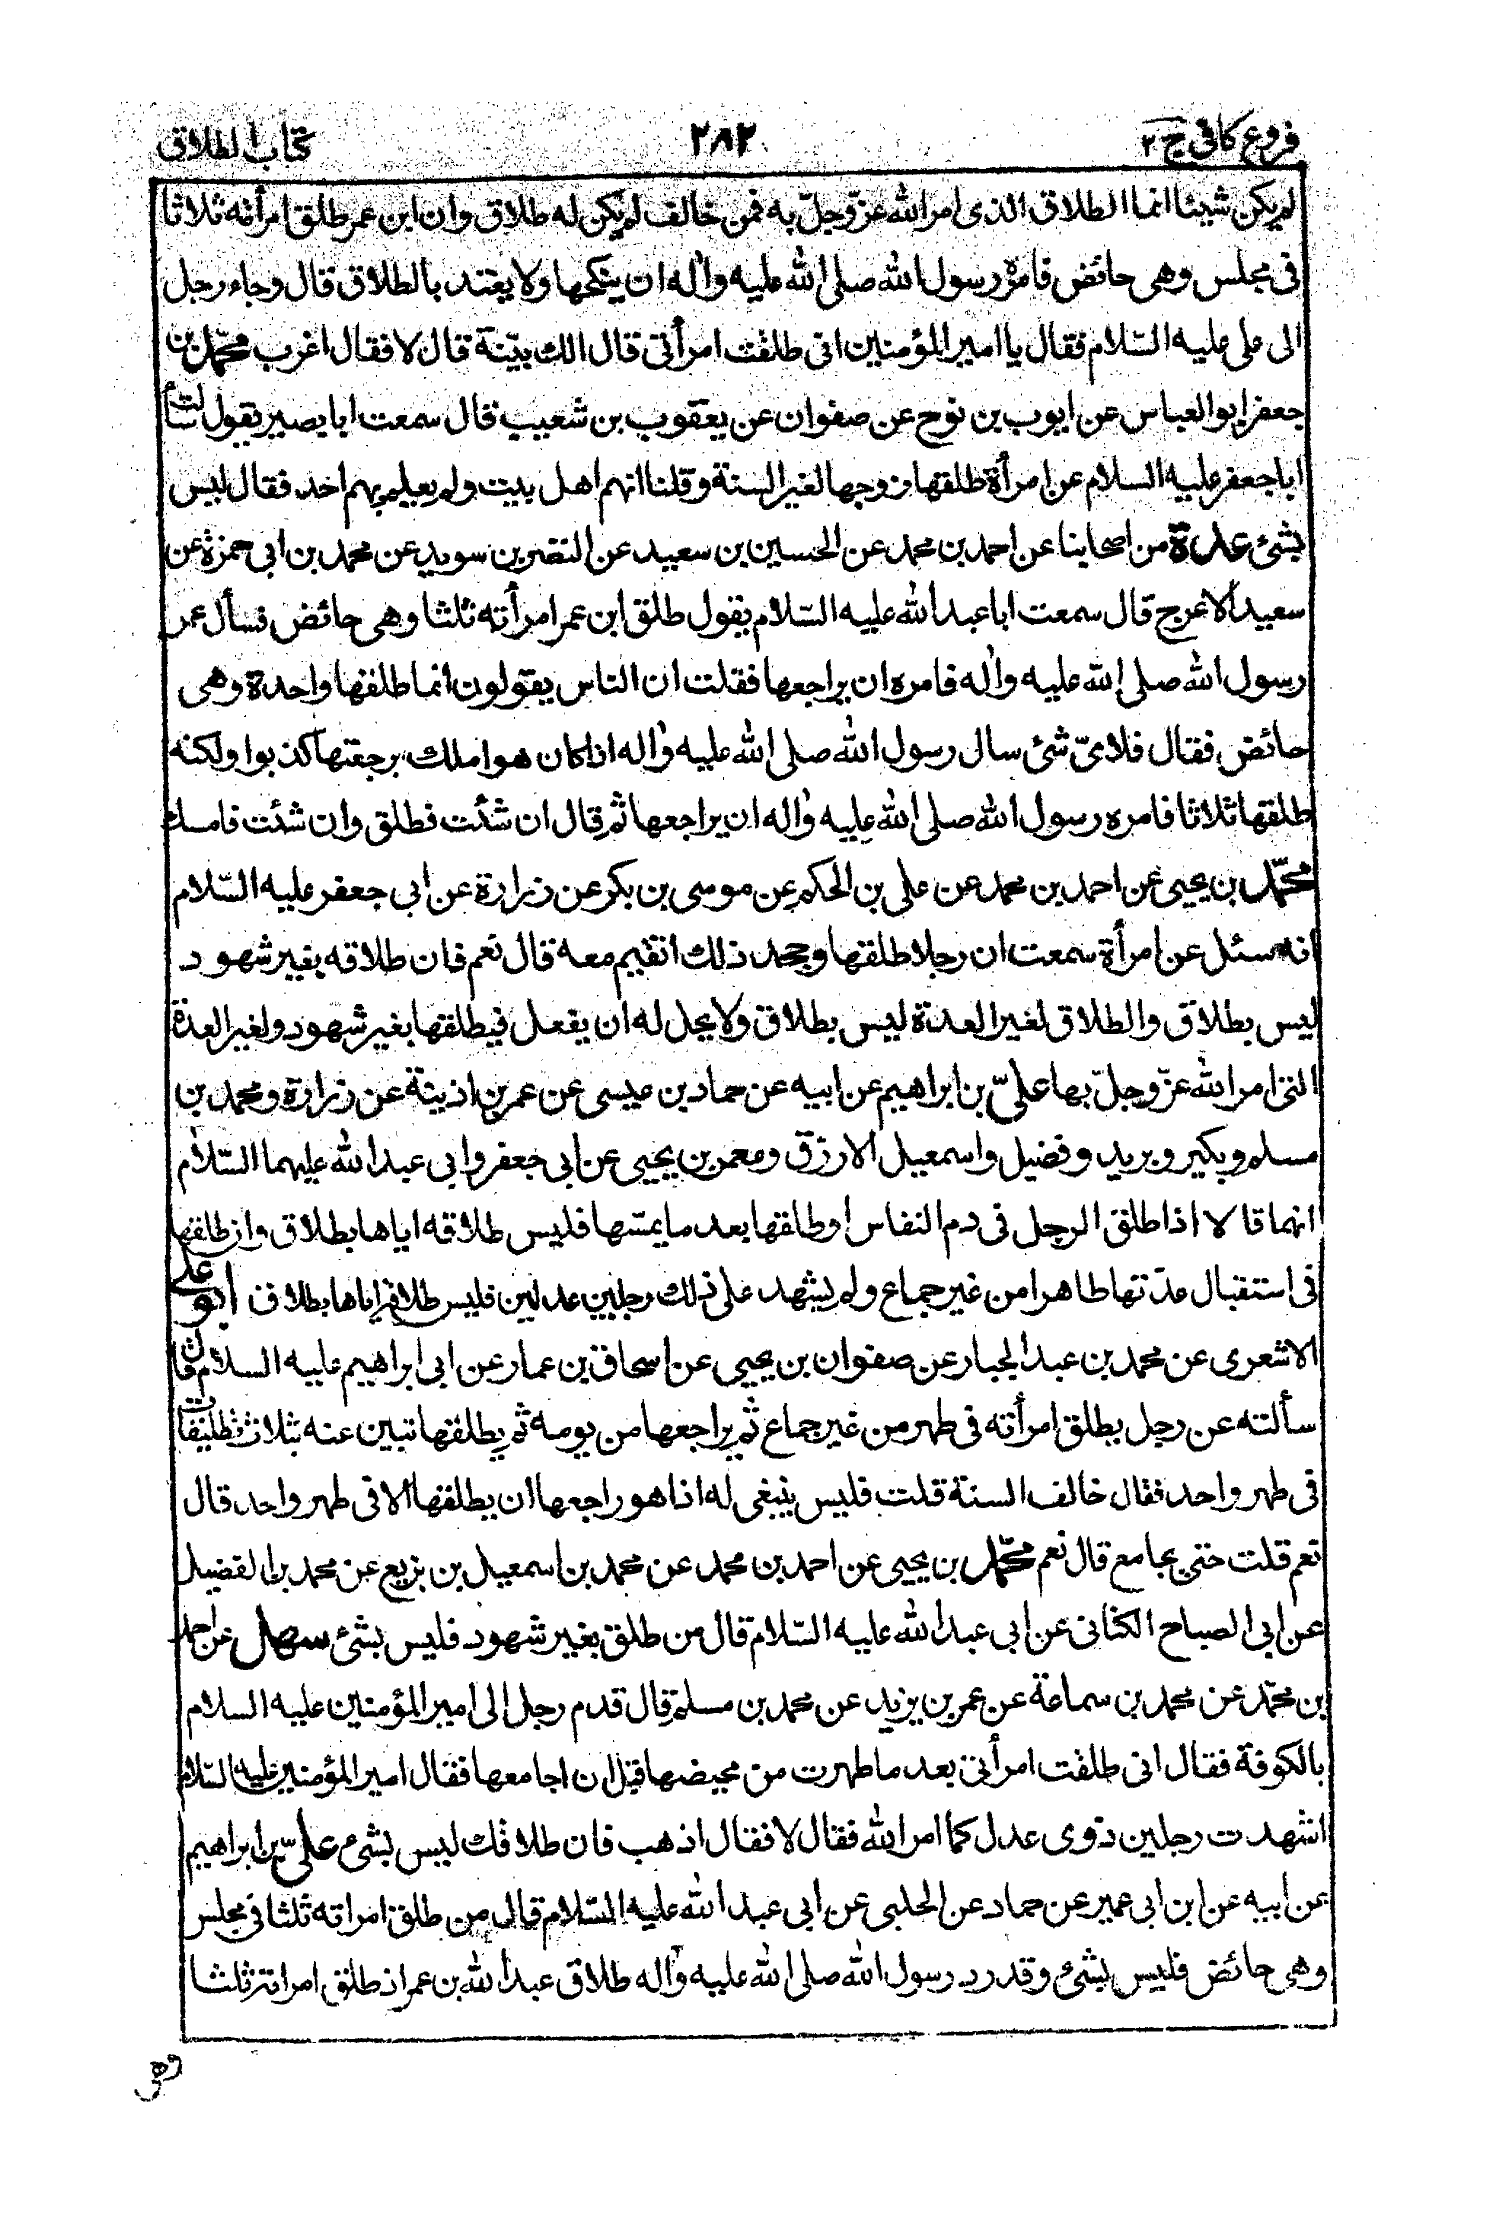 فروع كافى ج ٢ ٢٨٢ كتاب الطلاق
لم يكن شيئا انما الطلاق الذى امر الله عزّ وجلّ به فمن خالف لم يكن له طلاق وان ابن عمر طلق امرأته ثلاثا
فى مجلس وهى حائض فامره رسول الله صلى الله عليه واله ان ينكحها ولا يعتد بالطلاق قال وجاء رجل
الى على عليه السّلام فقال يا امير المؤمنين انى طلقت امرأتى قال الك بيّنة قال لا فقال اغرب محمّد بن
جعفر ابو العباس عن ايوب بن نوح عن صفوان عن يعقوب بن شعيب قال سمعت ابا بصير يقول سألت
ابا جعفر عليه السلام عن امرأة طلقها زوجها لغير السنة وقلنا انهم اهل بيت ولم يعلم بهم احد فقال ليس
بشئ عدة من اصحابنا عن احمد بن محمد عن الحسين بن سعيد عن النضر بن سويد عن محمد بن ابى حمزة عن
سعيد الاعرج قال سمعت ابا عبد الله عليه السّلام يقول طلق ابن عمر امرأته ثلثا وهى حائض فسأل عمر
رسول الله صلى الله عليه واله فامره ان يراجعها فقلت ان الناس يقولون انما طلقها واحدة وهى
حائض فقال فلاىّ شئ سال رسول الله صلى الله عليه واله اذا كان هو املك برجعتها كذبوا ولكنه
طلقها ثلاثا فامره رسول الله صلى الله عليه واله ان يراجعها ثم قال ان شئت فطلق وان شئت فامسك
محمّد بن يحيى عن احمد بن محمد عن على بن الحكم عن موسى بن بكر عن زرارة عن ابى جعفر عليه السّلام
انه سئل عن امرأة سمعت ان رجلا طلقها وجحد ذلك اتقيم معه قال نعم فان طلاقه بغير شهود
ليس بطلاق والطلاق لغير العدة ليس بطلاق ولا يحل له ان يفعل فيطلقها بغير شهود ولغير العدة
التى امر الله عزّ وجلّ بها علىّ بن ابراهيم عن ابيه عن حماد بن عيسى عن عمر بن اذينة عن زرارة ومحمد بن
مسلم وبكير وبريد وفضيل واسمعيل الازرق ومعمر بن يحيى عن ابى جعفر وابى عبد الله عليهما السّلام
انهما قالا اذا طلق الرجل فى دم النفاس او طلقها بعد ما يمسّها فليس طلاقه اياها بطلاق وان طلقها
فى استقبال عدّتها طاهرا من غير جماع ولم يشهد على ذلك رجلين عدلين فليس طلاقه اياها بطلاق ابو على
الاشعرى عن محمد بن عبد الجبار عن صفوان بن يحيى عن اسحاق بن عمار عن ابى ابراهيم عليه السلام قال
سألته عن رجل يطلق امرأته فى طهر من غير جماع ثم يراجعها من يومه ثم يطلقها تبين عنه بثلاث تطليقات
فى طهر واحد فقال خالف السنة قلت فليس ينبغى له اذا هو راجعها ان يطلقها الا فى طهر واحد قال
نعم قلت حتى يجامع قال نعم محمّد بن يحيى عن احمد بن محمد عن محمد بن اسمعيل بن بزيع عن محمد بن الفضيل
عن ابى الصباح الكنانى عن ابى عبد الله عليه السّلام قال من طلق بغير شهود فليس بشئ سهل عن احمد
بن محمّد عن محمد بن سماعة عن عمر بن يزيد عن محمد بن مسلم قال قدم رجل الى امير المؤمنين عليه السلام
بالكوفة فقال انى طلقت امرأتى بعد ما طهرت من محيضها قبل ان اجامعها فقال امير المؤمنين عليه السّلام
اشهدت رجلين ذوى عدل كما امر الله فقال لا فقال اذهب فان طلاقك ليس بشئ علىّ بن ابراهيم
عن ابيه عن ابن ابى عمير عن حماد عن الحلبى عن ابى عبد الله عليه السّلام قال من طلق امراته ثلثا فى مجلس
وهى حائض فليس بشئ وقد رد رسول الله صلى الله عليه واله طلاق عبد الله بن عمر اذ طلق امراته ثلثا
وهى